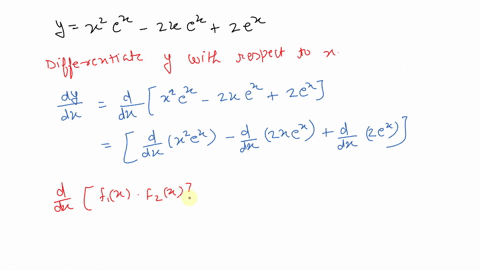 y = x² eˣ - 2x eˣ + 2 eˣ
Differentiate y with respect to x.
dy/dx = d/dx [ x² eˣ - 2x eˣ + 2eˣ ]
= [ d/dx (x² eˣ) - d/dx (2x eˣ) + d/dx (2eˣ) ]
d/dx [ f₁(x) · f₂(x) ]